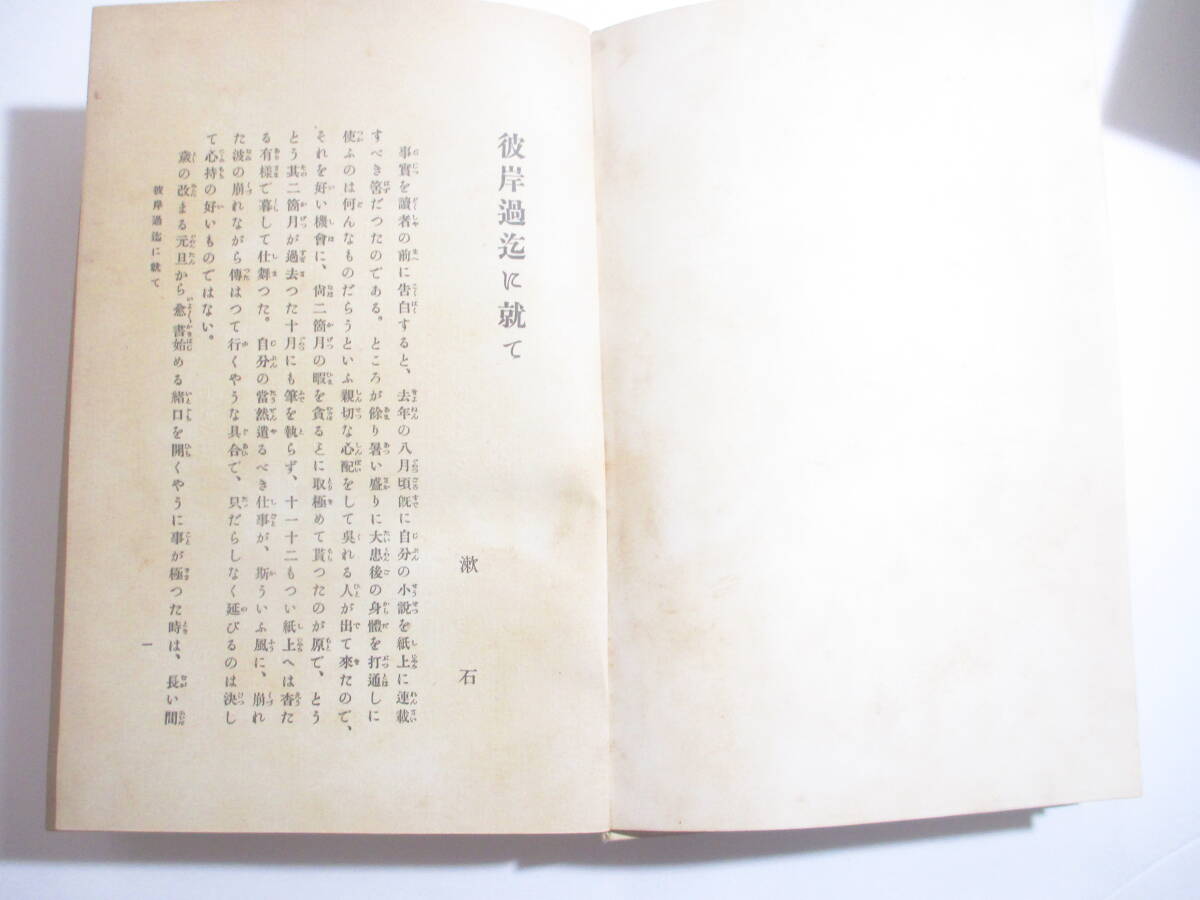 彼岸過迄に就て
漱石
事實を讀者の前に告白すると、去年の八月頃既に自分の小說を紙上に連載
すべき筈だつたのである。ところが餘り暑い盛りに大患後の身體を打通しに
使ふのは何んなものだらうといふ親切な心配をして吳れる人が出て來たので、
それを好い機會に、尙二箇月の暇を貪ることに取極めて貰つたのが原で、とう
とう其二箇月が過去つた十月にも筆を執らず、十一十二もつい紙上へは杳た
る有樣で暮して仕舞つた。自分の當然遣るべき仕事が、斯ういふ風に、崩れ
た波の崩れながら傳はつて行くやうな具合で、只だらしなく延びるのは決し
て心持の好いものではない。
歲の改まる元旦から愈書始める緖口を開くやうに事が極つた時は、長い間
彼岸過迄に就て
一